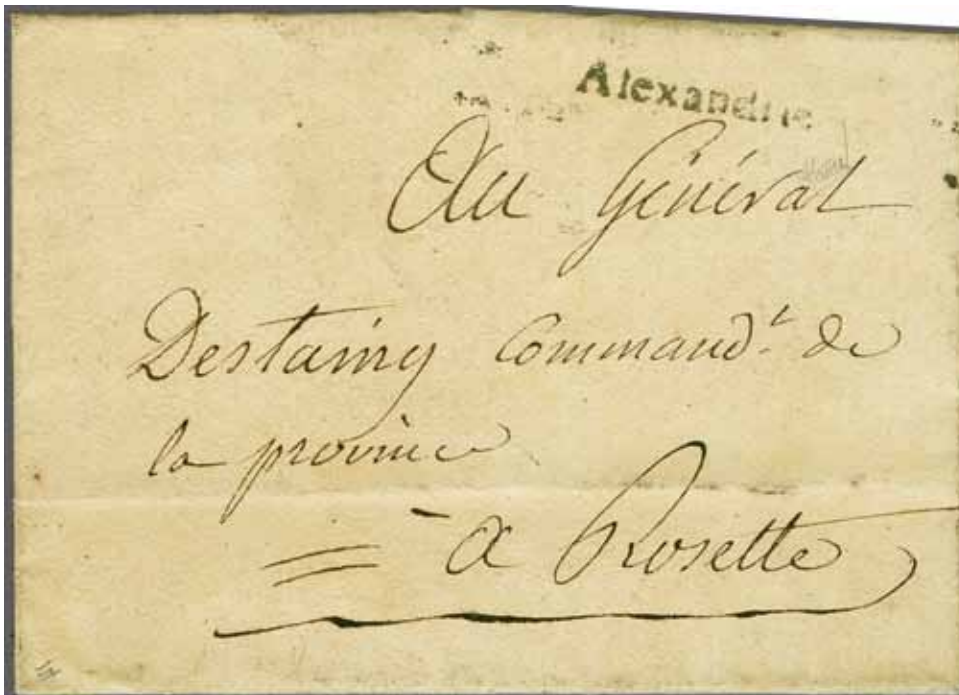 Alexandrie
Au Général
Destaing Command.t de
la province
à Rosette